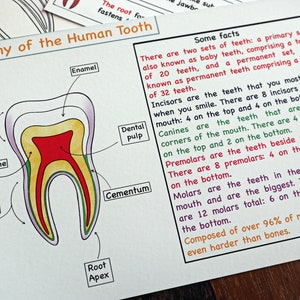 The root
fastens
the jawb
ny of the Human Tooth
Enamel
Dental
pulp
ne
Cementum
Root
Apex
Some facts
There are two sets of teeth: a primary s
also known as baby teeth, comprising a t
of 20 teeth, and a permanent set,
known as permanent teeth comprising
of 32 teeth.
Incisors are the teeth that you mos
when you smile. There are 8 incisors
mouth: 4 on the top and 4 on the bo
Canines are the teeth that are
corners of the mouth. There are 4
on the top and 2 on the bottom.
Premolars are the teeth beside
There are 8 premolars: 4 on the
on the bottom.
Molars are the teeth in the
mouth and are the biggest.
are 12 molars total: 6 on the
the bottom.
Composed of over 96% of m
even harder than bones.